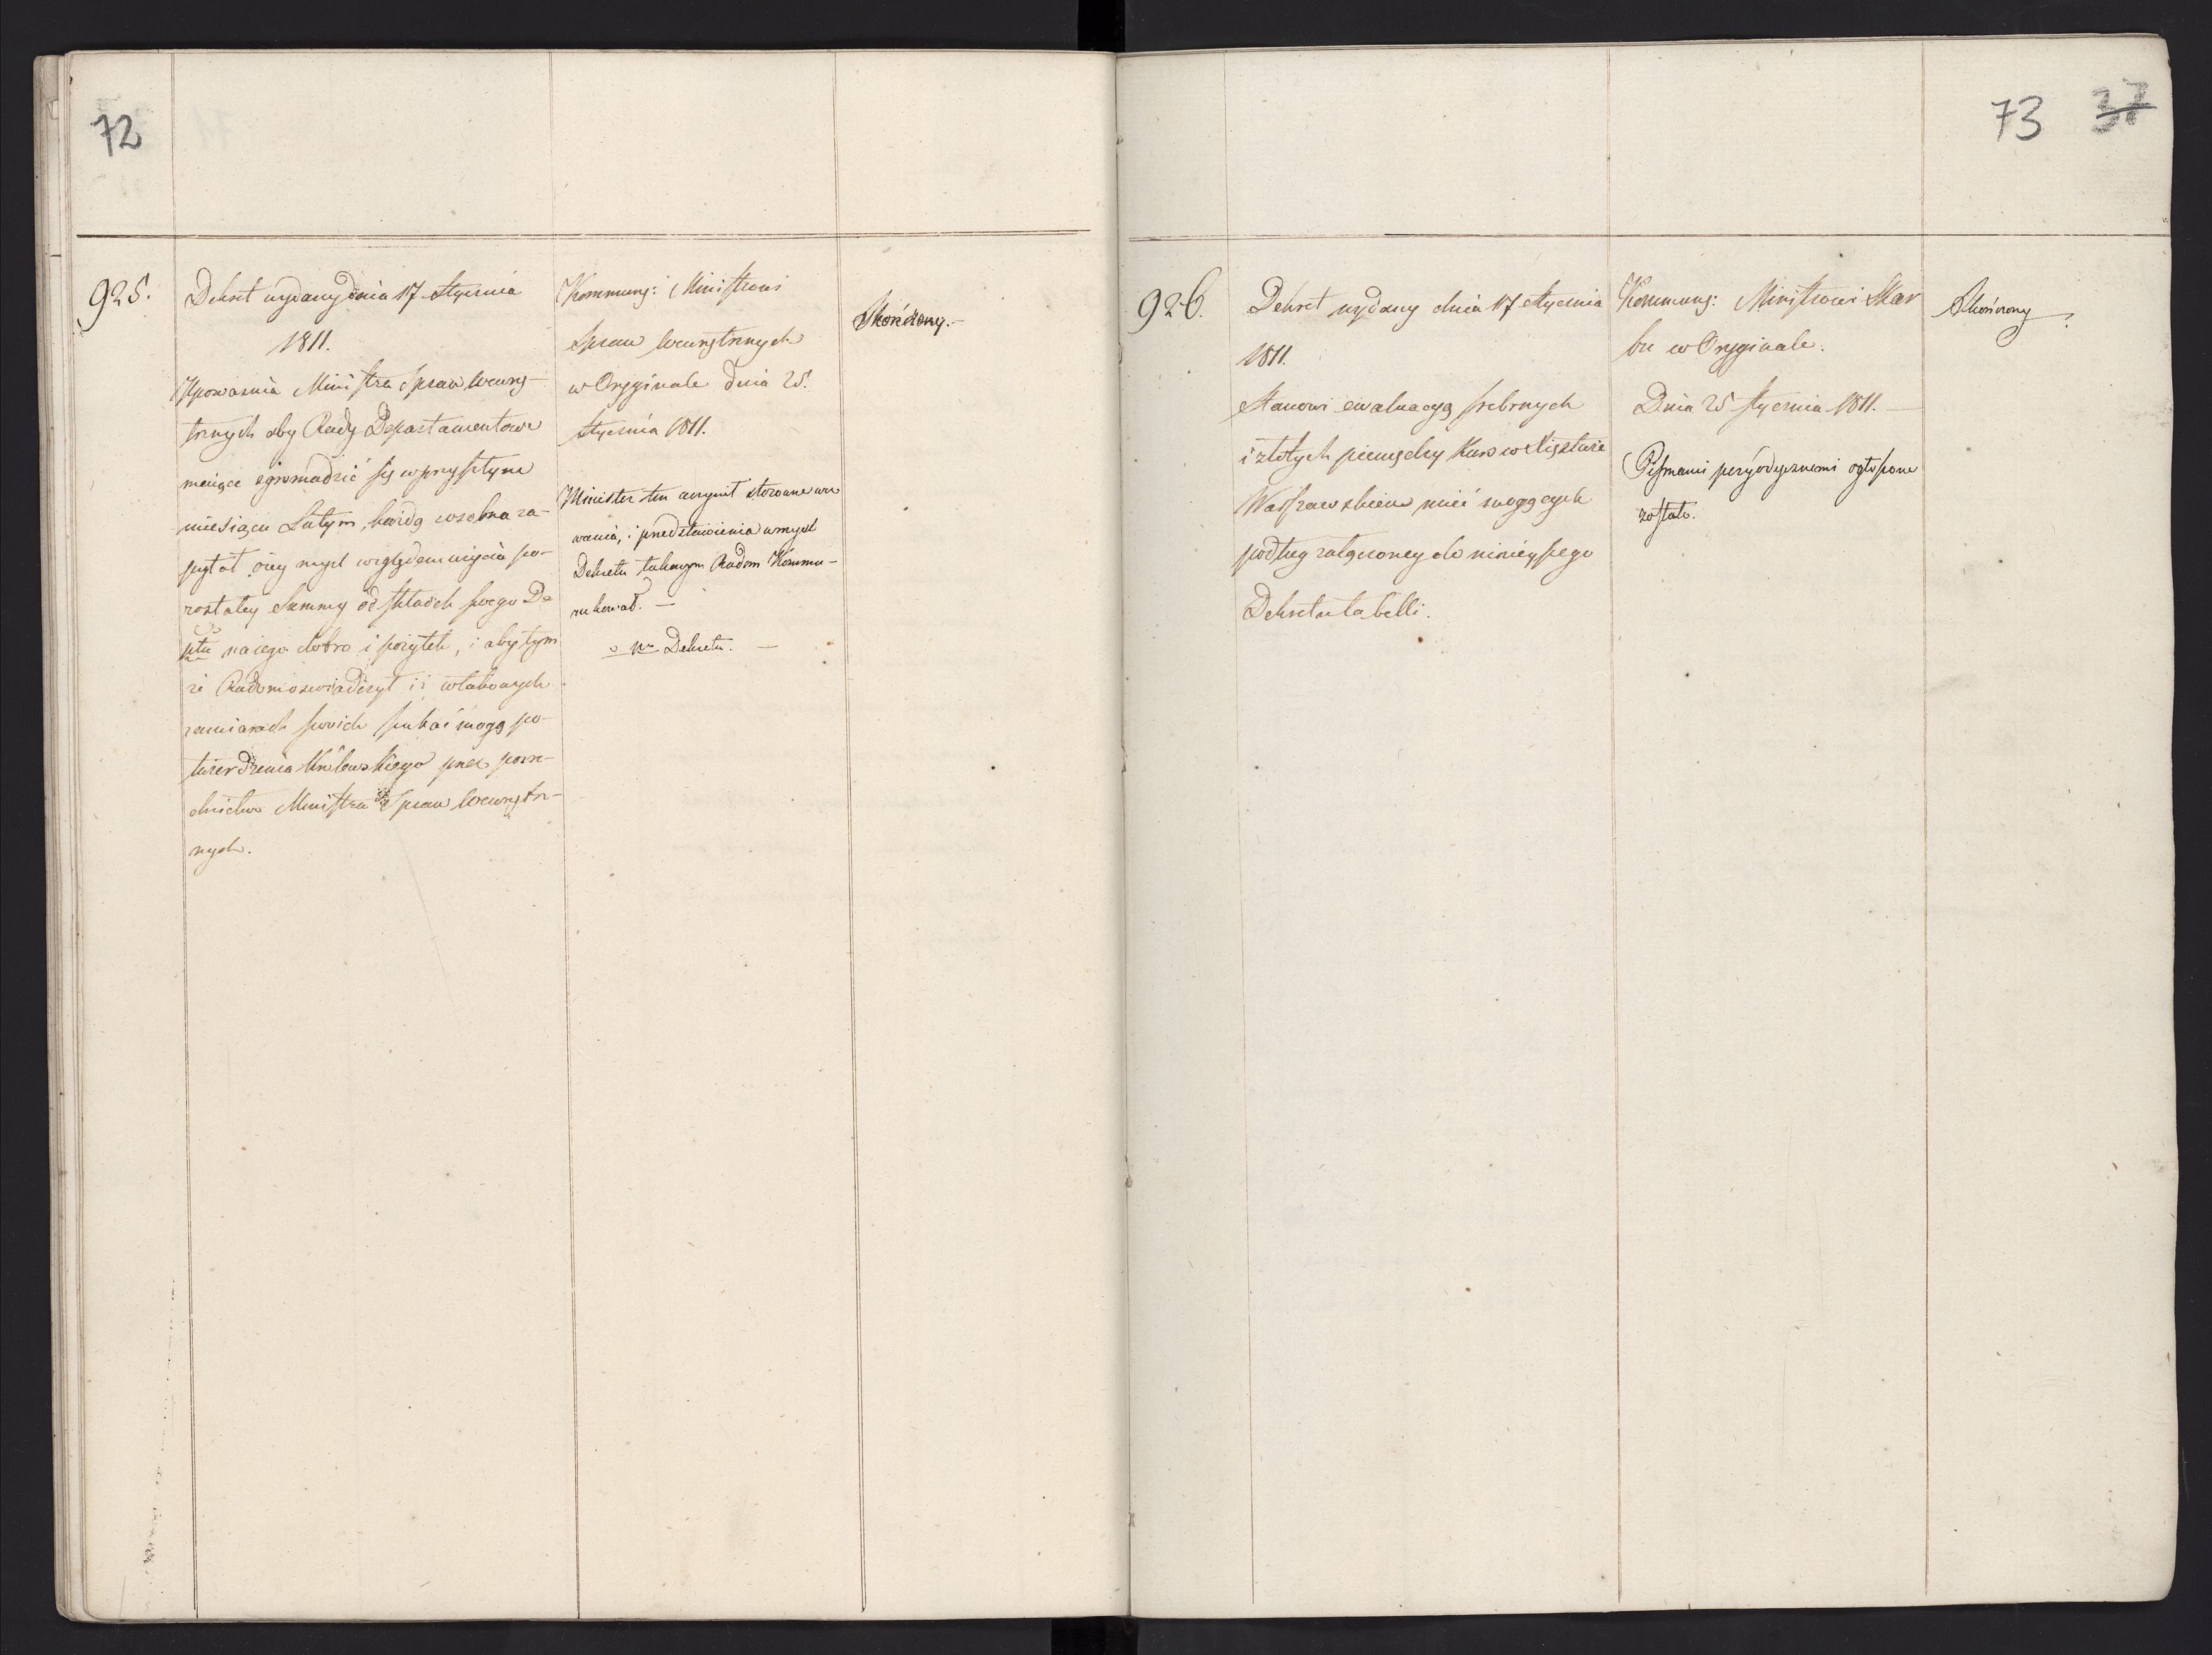 72
925.
Dekret wydany dnia 17 Stycznia
1811.
Upoważnia Ministra Spraw Wewnę-
trznych aby Rady Departamentowe
maiące zgromadzić się w przyszłym
miesiącu Lutym, każdą zosobna za-
pytał oiey myśl względem użycia po-
zostałey Summy od składek swego De
ptu na iego dobro i pożytek, i aby tym
że Radom oświadczył iż w takowych
zamiarach swoich szukać mogą po-
twierdzenia Królewskiego przez pośre-
dnictwo Ministra Spraw Wewnętrz-
nych.
Kommung: Ministrowi
Spraw Wewnętrznych
w Oryginale dnia 25.
Stycznia 1811.
Minister ten uczynił stosowne wez
wania, i przedstawienia w myśl
Dekretu takowym Radom Kommu-
nikował. —
Dekretu. —
Skończony. —
73 37
926.
Dekret wydany dnia 17 Stycznia
1811.
Stanowi ewaluacyą srebrnych
i złotych pieniędzy Kurs w Xięstwie
Warszawskiem mieć mogących
podług załączoney do ninieyszego
Dekretu tabelli.
Kommung: Ministrowi Skar
bu w Oryginale.
Dnia 25 Stycznia 1811. —
Pismami peryodycznemi ogłoszone
zostało.
Skończony